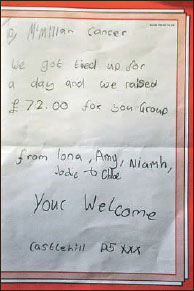 McMillan Cancer
we got tied up for
a day and we raised
£72.00 for you Group
from Iona, Amy, Niamh,
Jodie to Chloe
Your Welcome
Castlehill P5 xxx